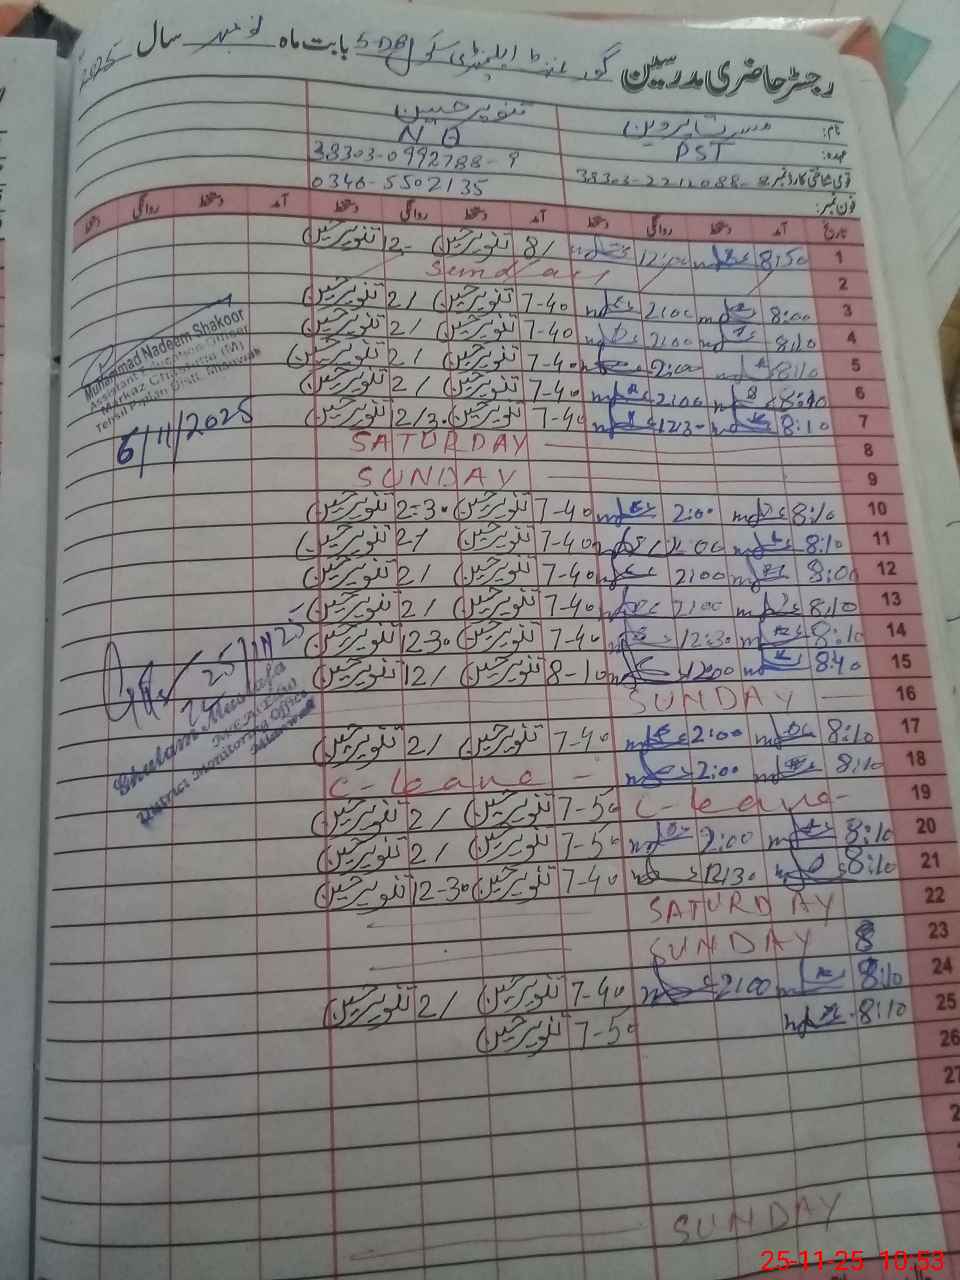 رجسٹر حاضری مدرسین گورنمنٹ ایلیمنٹری سکول 5-DB بابت ماہ نومبر سال 2025
نام: مسرت پروین تنویر حسین
عہدہ: PST N Q
قومی شناختی کارڈ نمبر 38303-0992788-9
فون نمبر: 0346-5502135
تاریخ آمد دستخط روانگی دستخط آمد دستخط روانگی دستخط آمد دستخط روانگی دستخط
1 8:50 12:00 8/ تنویر حسین 12- تنویر حسین
2 Sunday
3 8:00 2:00 7-40 تنویر حسین 2/ تنویر حسین
4 8:10 2:00 7-40 تنویر حسین 2/ تنویر حسین
5 8:10 2:00 7-40 تنویر حسین 2/ تنویر حسین
6 8:10 2:00 7-40 تنویر حسین 2/ تنویر حسین
7 8:10 123- 7-40 تنویر حسین 2/3. تنویر حسین
8 SATURDAY
9 SUNDAY
10 8:10 2:00 7-40 تنویر حسین 2-30 تنویر حسین
11 8:10 2:00 7-40 تنویر حسین 2/ تنویر حسین
12 8:00 2:00 7-40 تنویر حسین 2/ تنویر حسین
13 8:10 2:00 7-40 تنویر حسین 2/ تنویر حسین
14 8:10 12:30 7-40 تنویر حسین 12-30 تنویر حسین
15 8:40 1200 8-10 تنویر حسین 12/ تنویر حسین
16 SUNDAY
17 8:10 2:00 7-40 تنویر حسین 2/ تنویر حسین
18 8:10 2:00 C-leave
19 C-leave 7-50 تنویر حسین 2/ تنویر حسین
20 8:10 2:00 7-50 تنویر حسین 2/ تنویر حسین
21 8:10 1230 7-40 تنویر حسین 12-30 تنویر حسین
22 SATURDAY
23 SUNDAY 8
24 8:10 2:00 7-40 تنویر حسین 2/ تنویر حسین
25 8:10 7-50 تنویر حسین
26
27
SUNDAY
Muhammad Nadeem Shakoor
Assistant Education Officer
Markaz (M)
Tehsil Piplan Distt. Mianwali
6/11/2025
25/11/25
Ghulam Mustafa
District Monitoring Office
Mianwali
25-11-25 10:53